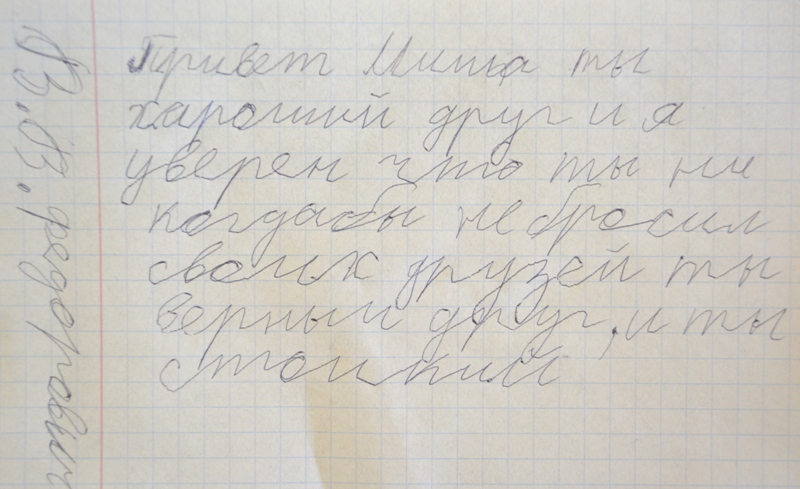 Привет Миша ты
хароший друг и я
уверен что ты ни
когдабы не бросил
своих друзей ты
верный друг, и ты
стоикий
В.В. федорович